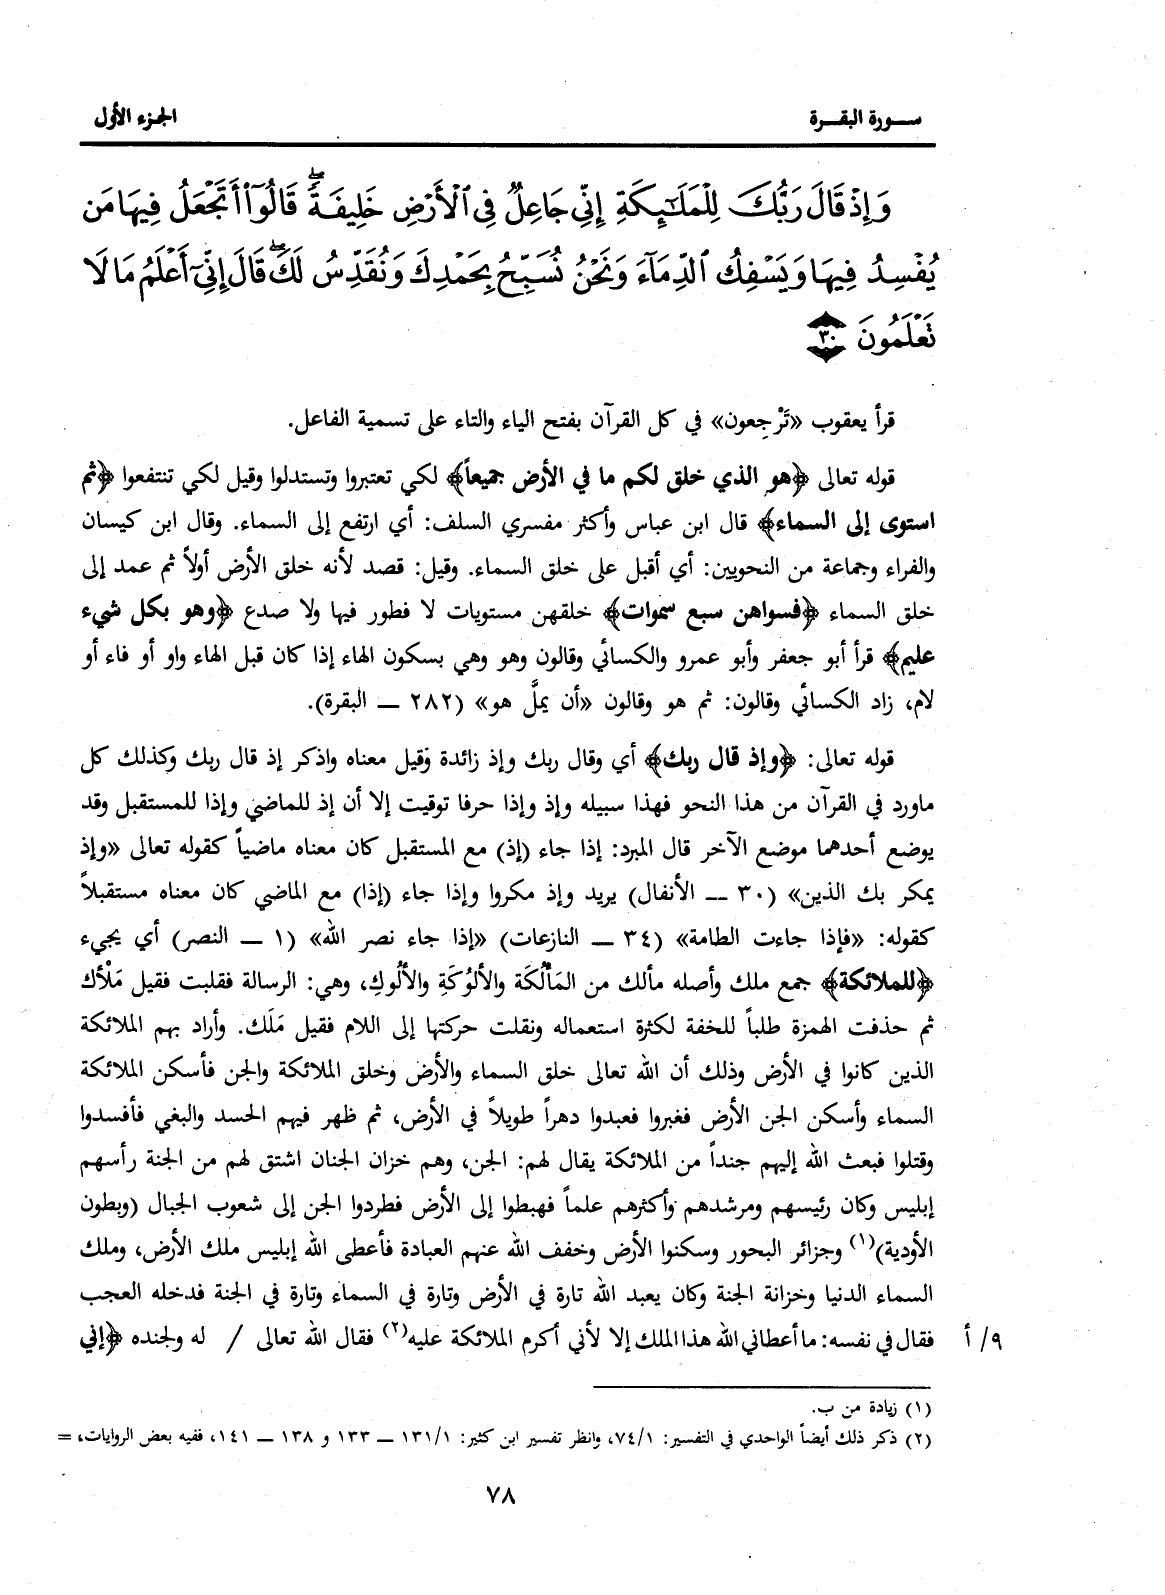 سـورة البقـرة
الجزء الأول
وَإِذْ قَالَ رَبُّكَ لِلْمَلَـٰٓئِكَةِ إِنِّي جَاعِلٌ فِي ٱلْأَرْضِ خَلِيفَةً ۖ قَالُوٓا۟ أَتَجْعَلُ فِيهَا مَن
يُفْسِدُ فِيهَا وَيَسْفِكُ ٱلدِّمَآءَ وَنَحْنُ نُسَبِّحُ بِحَمْدِكَ وَنُقَدِّسُ لَكَ ۖ قَالَ إِنِّيٓ أَعْلَمُ مَا لَا
تَعْلَمُونَ ٣٠
قرأ يعقوب «تَرْجِعون» في كل القرآن بفتح الياء والتاء على تسمية الفاعل.
قوله تعالى ﴿هو الذي خلق لكم ما في الأرض جميعاً﴾ لكي تعتبروا وتستدلوا وقيل لكي تنتفعوا ﴿ثم
استوى إلى السماء﴾ قال ابن عباس وأكثر مفسري السلف: أي ارتفع إلى السماء. وقال ابن كيسان
والفراء وجماعة من النحويين: أي أقبل على خلق السماء. وقيل: قصد لأنه خلق الأرض أولاً ثم عمد إلى
خلق السماء ﴿فسواهن سبع سموات﴾ خلقهن مستويات لا فطور فيها ولا صدع ﴿وهو بكل شيء
عليم﴾ قرأ أبو جعفر وأبو عمرو والكسائي وقالون وهو وهي بسكون الهاء إذا كان قبل الهاء واو أو فاء أو
لام، زاد الكسائي وقالون: ثم هو وقالون «أن يملَّ هو» (٢٨٢ — البقرة).
قوله تعالى: ﴿وإذ قال ربك﴾ أي وقال ربك وإذ زائدة وقيل معناه واذكر إذ قال ربك وكذلك كل
ماورد في القرآن من هذا النحو فهذا سبيله وإذ وإذا حرفا توقيت إلا أن إذ للماضي وإذا للمستقبل وقد
يوضع أحدهما موضع الآخر قال المبرد: إذا جاء (إذ) مع المستقبل كان معناه ماضياً كقوله تعالى «وإذ
يمكر بك الذين» (٣٠ — الأنفال) يريد وإذ مكروا وإذا جاء (إذا) مع الماضي كان معناه مستقبلاً
كقوله: «فإذا جاءت الطامة» (٣٤ — النازعات) «إذا جاء نصر الله» (١ — النصر) أي يجيء
﴿للملائكة﴾ جمع ملك وأصله مألك من المَأْلُكَة والألُوكَةِ والألُوكِ، وهي: الرسالة فقلبت فقيل مَلْأك
ثم حذفت الهمزة طلباً للخفة لكثرة استعماله ونقلت حركتها إلى اللام فقيل مَلَك. وأراد بهم الملائكة
الذين كانوا في الأرض وذلك أن الله تعالى خلق السماء والأرض وخلق الملائكة والجن فأسكن الملائكة
السماء وأسكن الجن الأرض فغبروا فعبدوا دهراً طويلاً في الأرض، ثم ظهر فيهم الحسد والبغي فأفسدوا
وقتلوا فبعث الله إليهم جنداً من الملائكة يقال لهم: الجن، وهم خزان الجنان اشتق لهم من الجنة رأسهم
إبليس وكان رئيسهم ومرشدهم وأكثرهم علماً فهبطوا إلى الأرض فطردوا الجن إلى شعوب الجبال (وبطون
الأودية)(١) وجزائر البحور وسكنوا الأرض وخفف الله عنهم العبادة فأعطى الله إبليس ملك الأرض، وملك
السماء الدنيا وخزانة الجنة وكان يعبد الله تارة في الأرض وتارة في السماء وتارة في الجنة فدخله العجب
٩/أ فقال في نفسه: ما أعطاني الله هذا الملك إلا لأني أكرم الملائكة عليه(٢) فقال الله تعالى / له ولجنده ﴿إني
(١) زيادة من ب.
(٢) ذكر ذلك أيضاً الواحدي في التفسير: ٧٤/١، وانظر تفسير ابن كثير: ١٣١/١ — ١٣٣ و ١٣٨ — ١٤١، ففيه بعض الروايات، =
٧٨